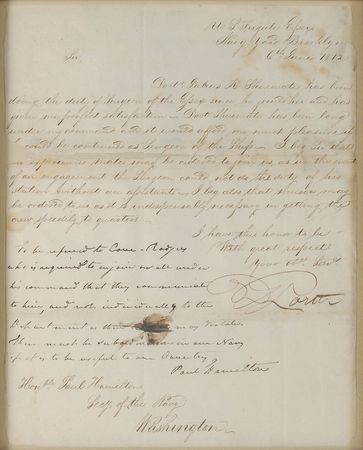 U S Frigate Essex
Navy Yard Brooklyn
6th June 1812
Sir,
Doctr R has been
doing the duty of Surgeon of the Essex since he joined her and has
given me perfect satisfaction — Doctr has been long
under my command and it would afford me much pleasure if
could be continued as Surgeon of the Ship — I beg Sir that
Mates may be ordered to join us, as in the event
of an engagement the Surgeon could not do the duty of his
station without an assistant. I beg also that
may be ordered to us as it is indispensably necessary in getting the
crew speedily to quarters —
I have the honor to be
With great respect
Your Obt Servt
D Porter
To be referred to Com: Rodgers
who is required to under
his command that they communicate
to him, and not individually to the
Department
There must be subordination in our Navy
if it is to be useful to our Country
Paul Hamilton
Honble Paul Hamilton
Secy of the Navy
Washington